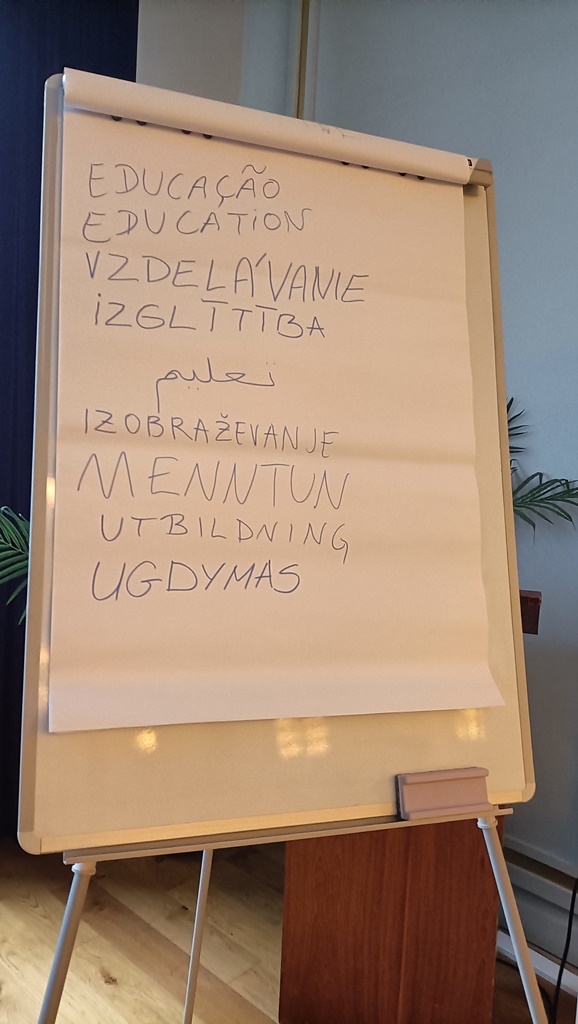 EDUCAÇÃO
EDUCATION
VZDELÁVANIE
IZGLĪTĪBA
تعليم
IZOBRAŽEVANJE
MENNTUN
UTBILDNING
UGDYMAS